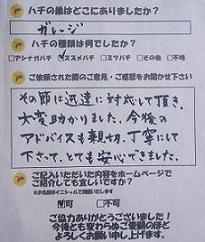 ハチの巣はどこにありましたか?
ガレージ
ハチの種類は何でしたか?
□アシナガバチ ☑スズメバチ □ミツバチ □その他 □不明
ご依頼された際のご意見・ご感想をお聞かせ下さい
その節は迅速に対応して頂き、
大変助かりました。今後の
アドバイスも親切、丁寧にして
下さって、とても安心できました。
ご記入いただいた内容をホームページで
ご紹介しても宜しいですか?
☑可 □不可
ご協力ありがとうございました!
今後とも変わらぬご愛顧のほど
よろしくお願い申し上げます。